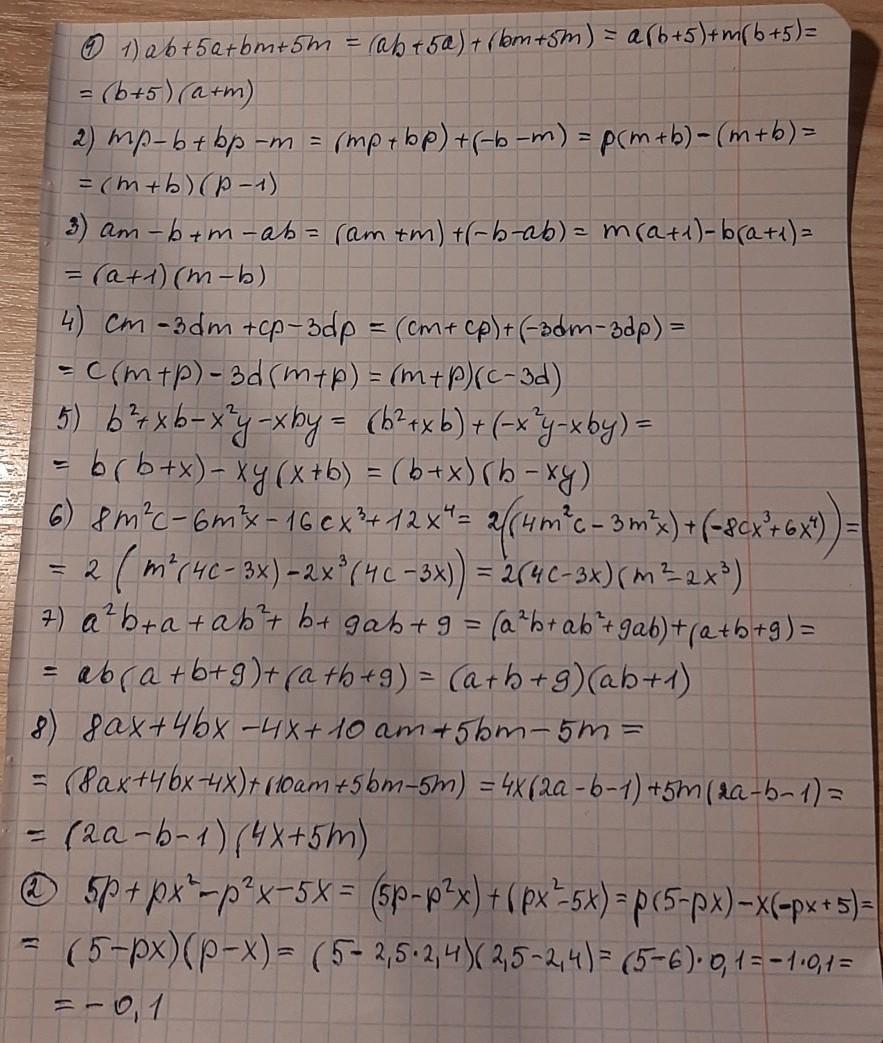 ① 1) ab+5a+bm+5m = (ab+5a)+(bm+5m) = a(b+5)+m(b+5)=
= (b+5)(a+m)
2) mp-b+bp-m = (mp+bp)+(-b-m) = p(m+b)-(m+b)=
= (m+b)(p-1)
3) am-b+m-ab = (am+m)+(-b-ab) = m(a+1)-b(a+1)=
= (a+1)(m-b)
4) cm-3dm+cp-3dp = (cm+cp)+(-3dm-3dp)=
= c(m+p)-3d(m+p) = (m+p)(c-3d)
5) b²+xb-x²y-xby = (b²+xb)+(-x²y-xby)=
= b(b+x)-xy(x+b) = (b+x)(b-xy)
6) 8m²c-6m²x-16cx³+12x⁴ = 2((4m²c-3m²x)+(-8cx³+6x⁴))=
= 2(m²(4c-3x)-2x³(4c-3x)) = 2(4c-3x)(m²-2x³)
7) a²b+a+ab²+b+9ab+9 = (a²b+ab²+9ab)+(a+b+9)=
= ab(a+b+9)+(a+b+9) = (a+b+9)(ab+1)
8) 8ax+4bx-4x+10am+5bm-5m=
= (8ax+4bx-4x)+(10am+5bm-5m) = 4x(2a-b-1)+5m(2a-b-1)=
= (2a-b-1)(4x+5m)
② 5p+px²-p²x-5x = (5p-p²x)+(px²-5x) = p(5-px)-x(-px+5)=
= (5-px)(p-x) = (5-2,5·2,4)(2,5-2,4) = (5-6)·0,1 = -1·0,1=
= -0,1